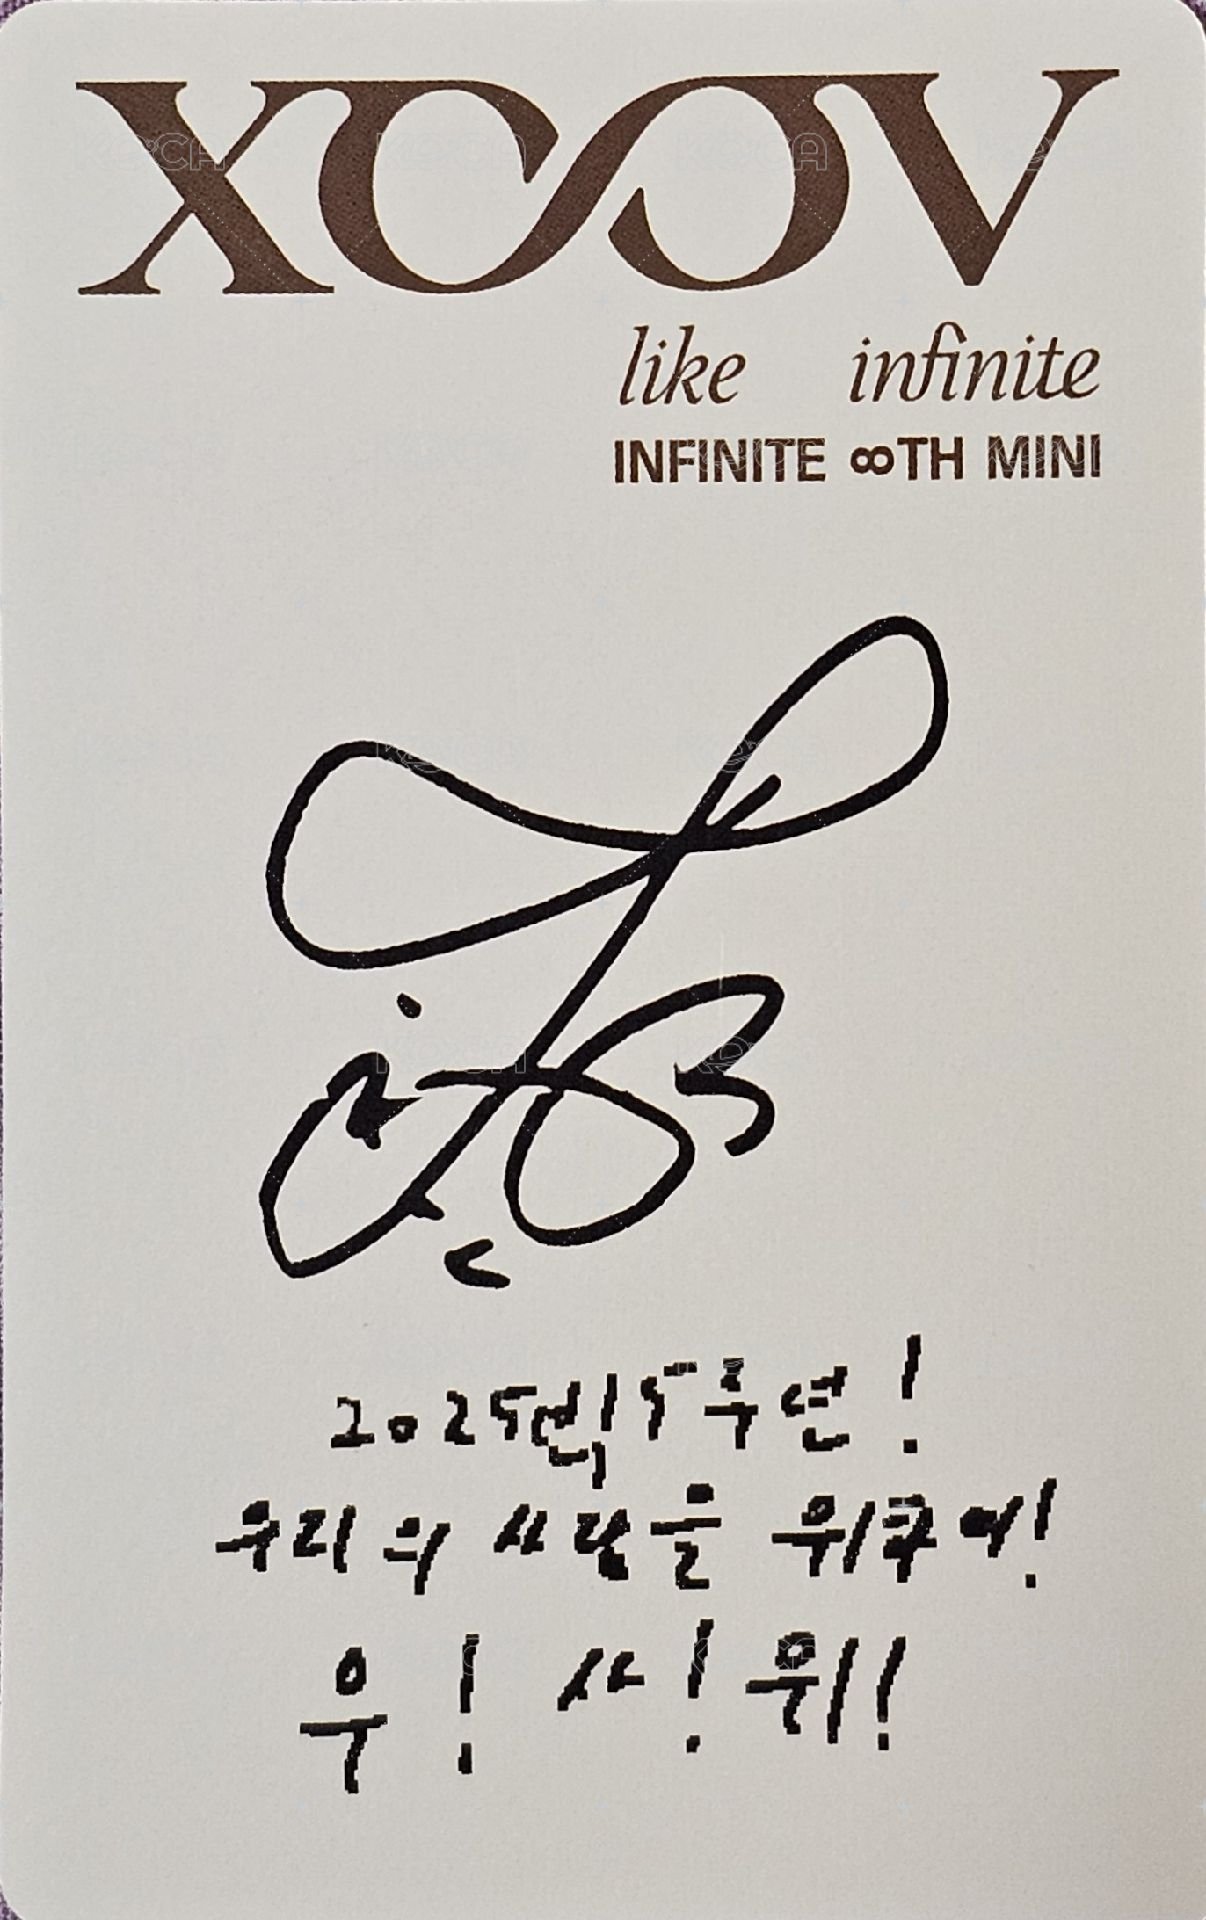 XOOV
like infinite
INFINITE ∞TH MINI
2025년, 15주년!
우리의 사랑을 위하여!
우! 사! 위!
KOCA